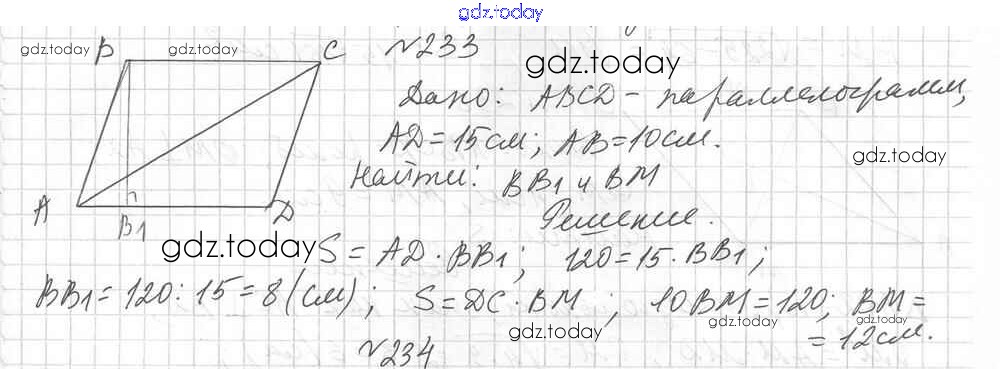 gdz.today
gdz.today gdz.today
B C
A B1 D
№233
gdz.today
Дано: ABCD - параллелограмм,
AD = 15 см; AB = 10 см.
gdz.today
Найти: BB1 и BM
Решение.
gdz.today
S = AD · BB1; 120 = 15 · BB1;
BB1 = 120 : 15 = 8 (см); S = DC · BM; 10BM = 120; BM =
gdz.today gdz.today gdz.today
= 12 см.
№234